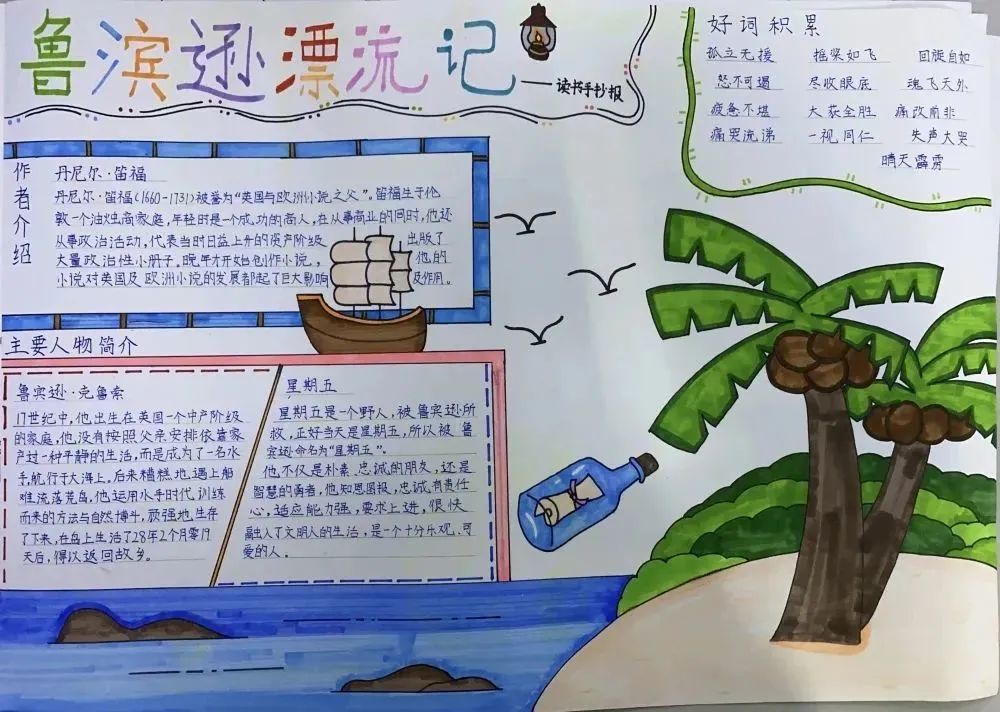 鲁滨逊漂流记
——读书手抄报
好词积累
孤立无援 摇桨如飞 回旋自如
怒不可遏 尽收眼底 魂飞天外
疲惫不堪 大获全胜 痛改前非
痛哭流涕 一视同仁 失声大哭
晴天霹雳
作者介绍
丹尼尔·笛福
丹尼尔·笛福(1660-1731)被誉为“英国与欧洲小说之父”。笛福生于伦
敦一个油烛商家庭,年轻时是一个成功的商人,在从事商业的同时,他还
从事政治活动,代表当时日益上升的资产阶级 出版了
大量政治性小册子。晚年才开始创作小说, 他的
小说对英国及欧洲小说的发展都起了巨大影响 及作用。
主要人物简介
鲁宾逊·克鲁索
17世纪中,他出生在英国一个中产阶级
的家庭,他没有按照父亲安排依着家
产过一种平静的生活,而是成为了一名水
手航行于大海上。后来糟糕地遇上船
难流落荒岛,他运用水手时代训练
而来的方法与自然搏斗,顽强地生存
了下来,在岛上生活了28年2个月零19
天后,得以返回故乡。
星期五
星期五是一个野人,被鲁宾逊所
救,正好当天是星期五,所以被鲁
宾逊命名为“星期五”。
他不仅是朴素、忠诚的朋友,还是
智慧的勇者,他知恩图报,忠诚有责任
心,适应能力强,要求上进,很快
融入了文明人的生活,是一个十分乐观、可
爱的人。